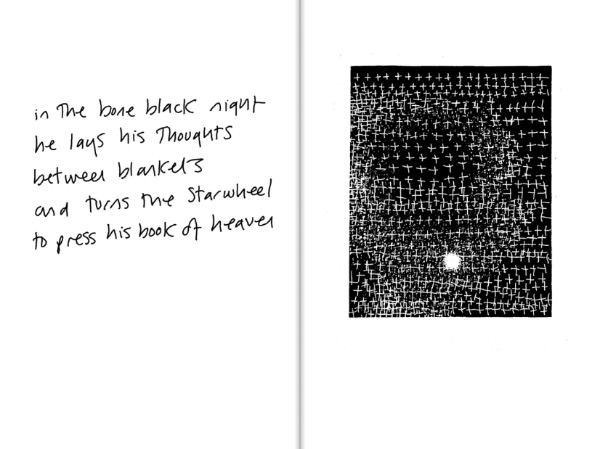 in The bone black night
he lays his Thoughts
between blankets
and turns the Starwheel
to press his book of heaven